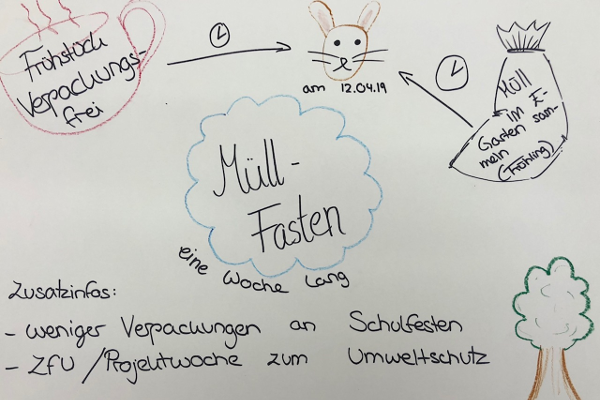 Frühstück
Verpackungs-
frei
am 12.04.19
Müll
im K-
Garten sam-
meln
(Frühling)
Müll-
Fasten
eine Woche Lang
Zusatzinfos:
- weniger Verpackungen an Schulfesten
- ZfU / Projektwoche zum Umweltschutz